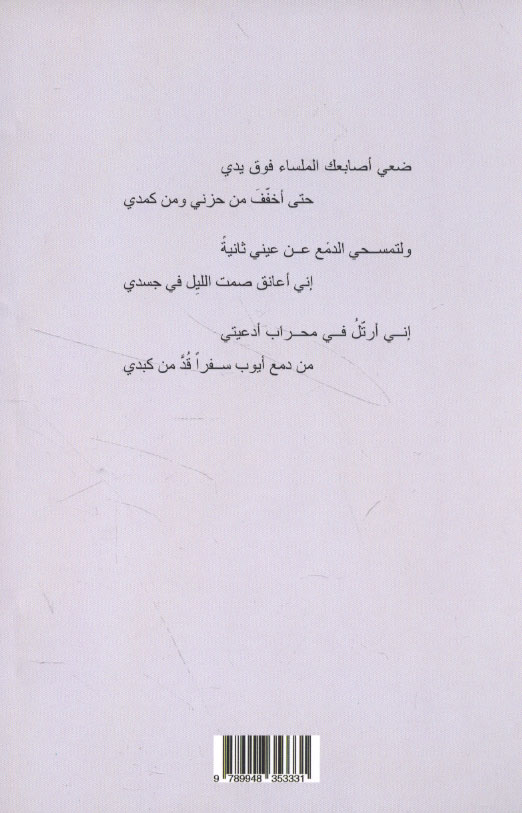 ضعي أصابعك الملساء فوق يدي
حتى أخفّفَ من حزني ومن كمدي
ولتمسحي الدمَع عن عيني ثانيةً
إني أعانق صمت الليل في جسدي
إني أرتّلُ في محراب أدعيتي
من دمع أيوب سفراً قُدَّ من كبدي
9 789948 353331